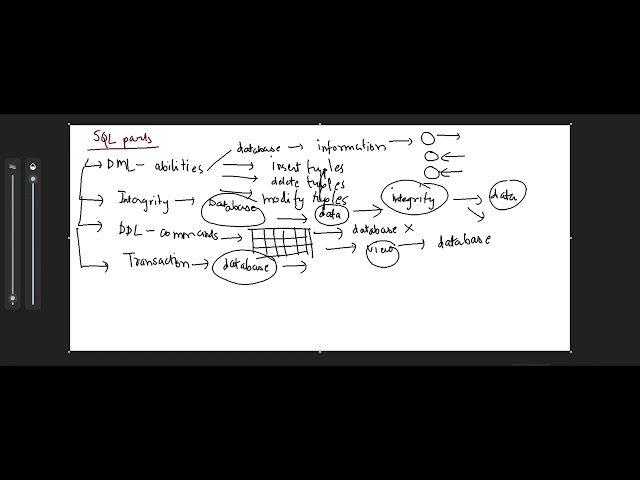 SQL parts
database → information →
DML - abilities → insert tuples
→ delete tuples
→ modify tuples
Intargrity → Database → data → integrity → data
DDL - commands → → database ×
→ view → database
Transaction → database →